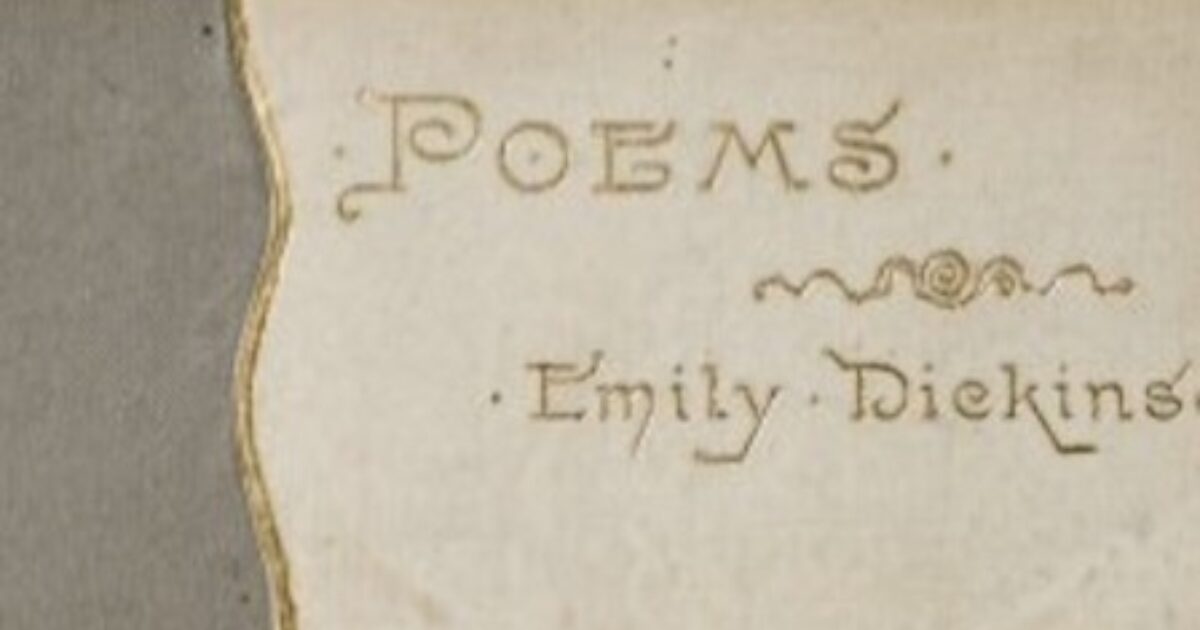 · POEMS ·
· Emily · Dickins